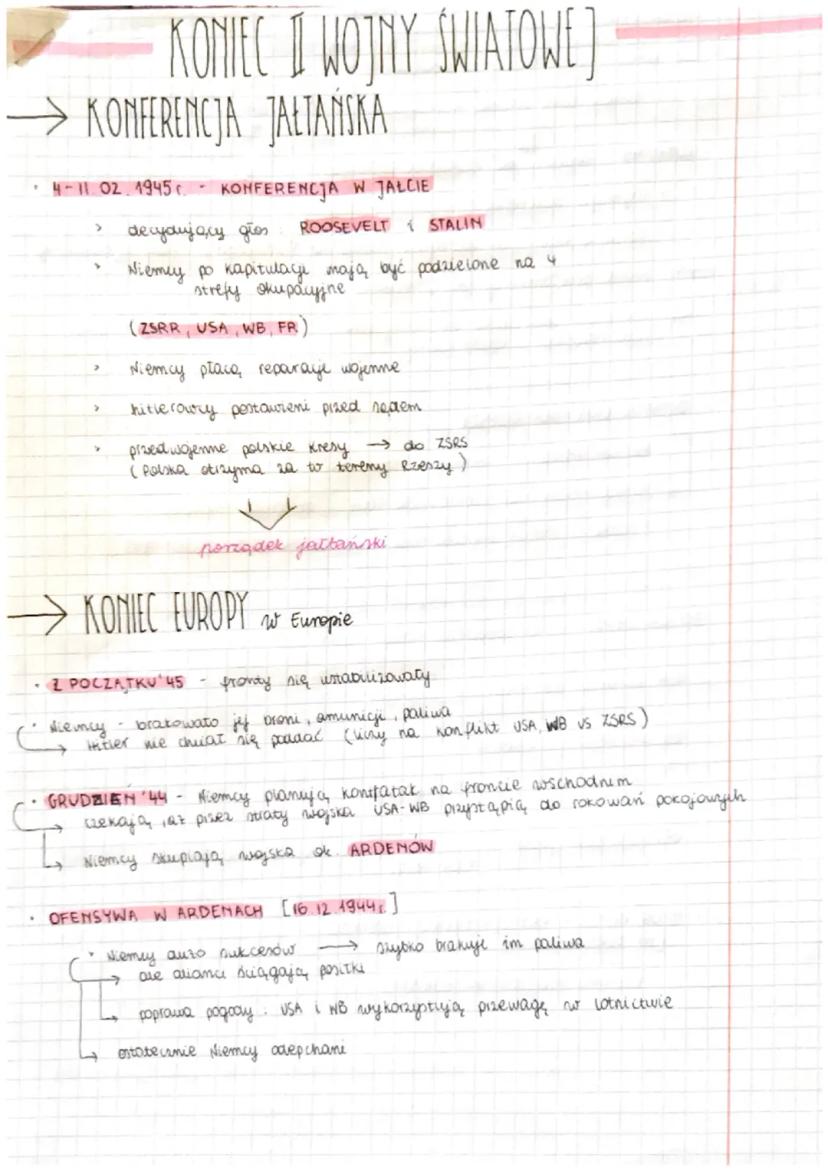 KONIEC II WOJNY ŚWIATOWEJ
→ KONFERENCJA JAŁTAŃSKA
· 4-11.02.1945r. - KONFERENCJA W JAŁCIE
> decydujący głos: ROOSEVELT i STALIN
> Niemcy po kapitulacji mają być podzielone na 4
strefy okupacyjne
(ZSRR, USA, WB, FR)
> Niemcy płacą reparacje wojenne
> hitlerowcy postawieni przed sądem
> przedwojenne polskie kresy → do ZSRS
(Polska otrzyma za to tereny Rzeszy)
porządek jałtański
→ KONIEC EUROPY w Europie
· Z POCZĄTKU '45 - fronty się ustabilizowały
· Niemcy - brakowało jej broni, amunicji, paliwa
→ Hitler nie chciał się poddać (liczy na konflikt USA, WB vs ZSRS)
· GRUDZIEŃ '44 - Niemcy planują kontratak na froncie wschodnim
→ czekają, aż przez straty wojska USA-WB przystąpią do rokowań pokojowych
→ Niemcy skupiają wojska ok. ARDENÓW
· OFENSYWA W ARDENACH [16.12.1944r.]
· Niemcy dużo sukcesów → szybko brakuje im paliwa
→ ale alianci ściągają posiłki
→ poprawa pogody: USA i WB wykorzystują przewagę w lotnictwie
→ ostatecznie Niemcy odepchani